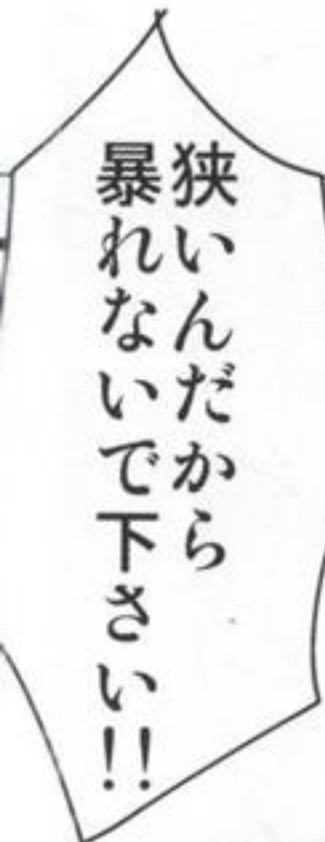 狭いんだから
暴れないで下さい!!